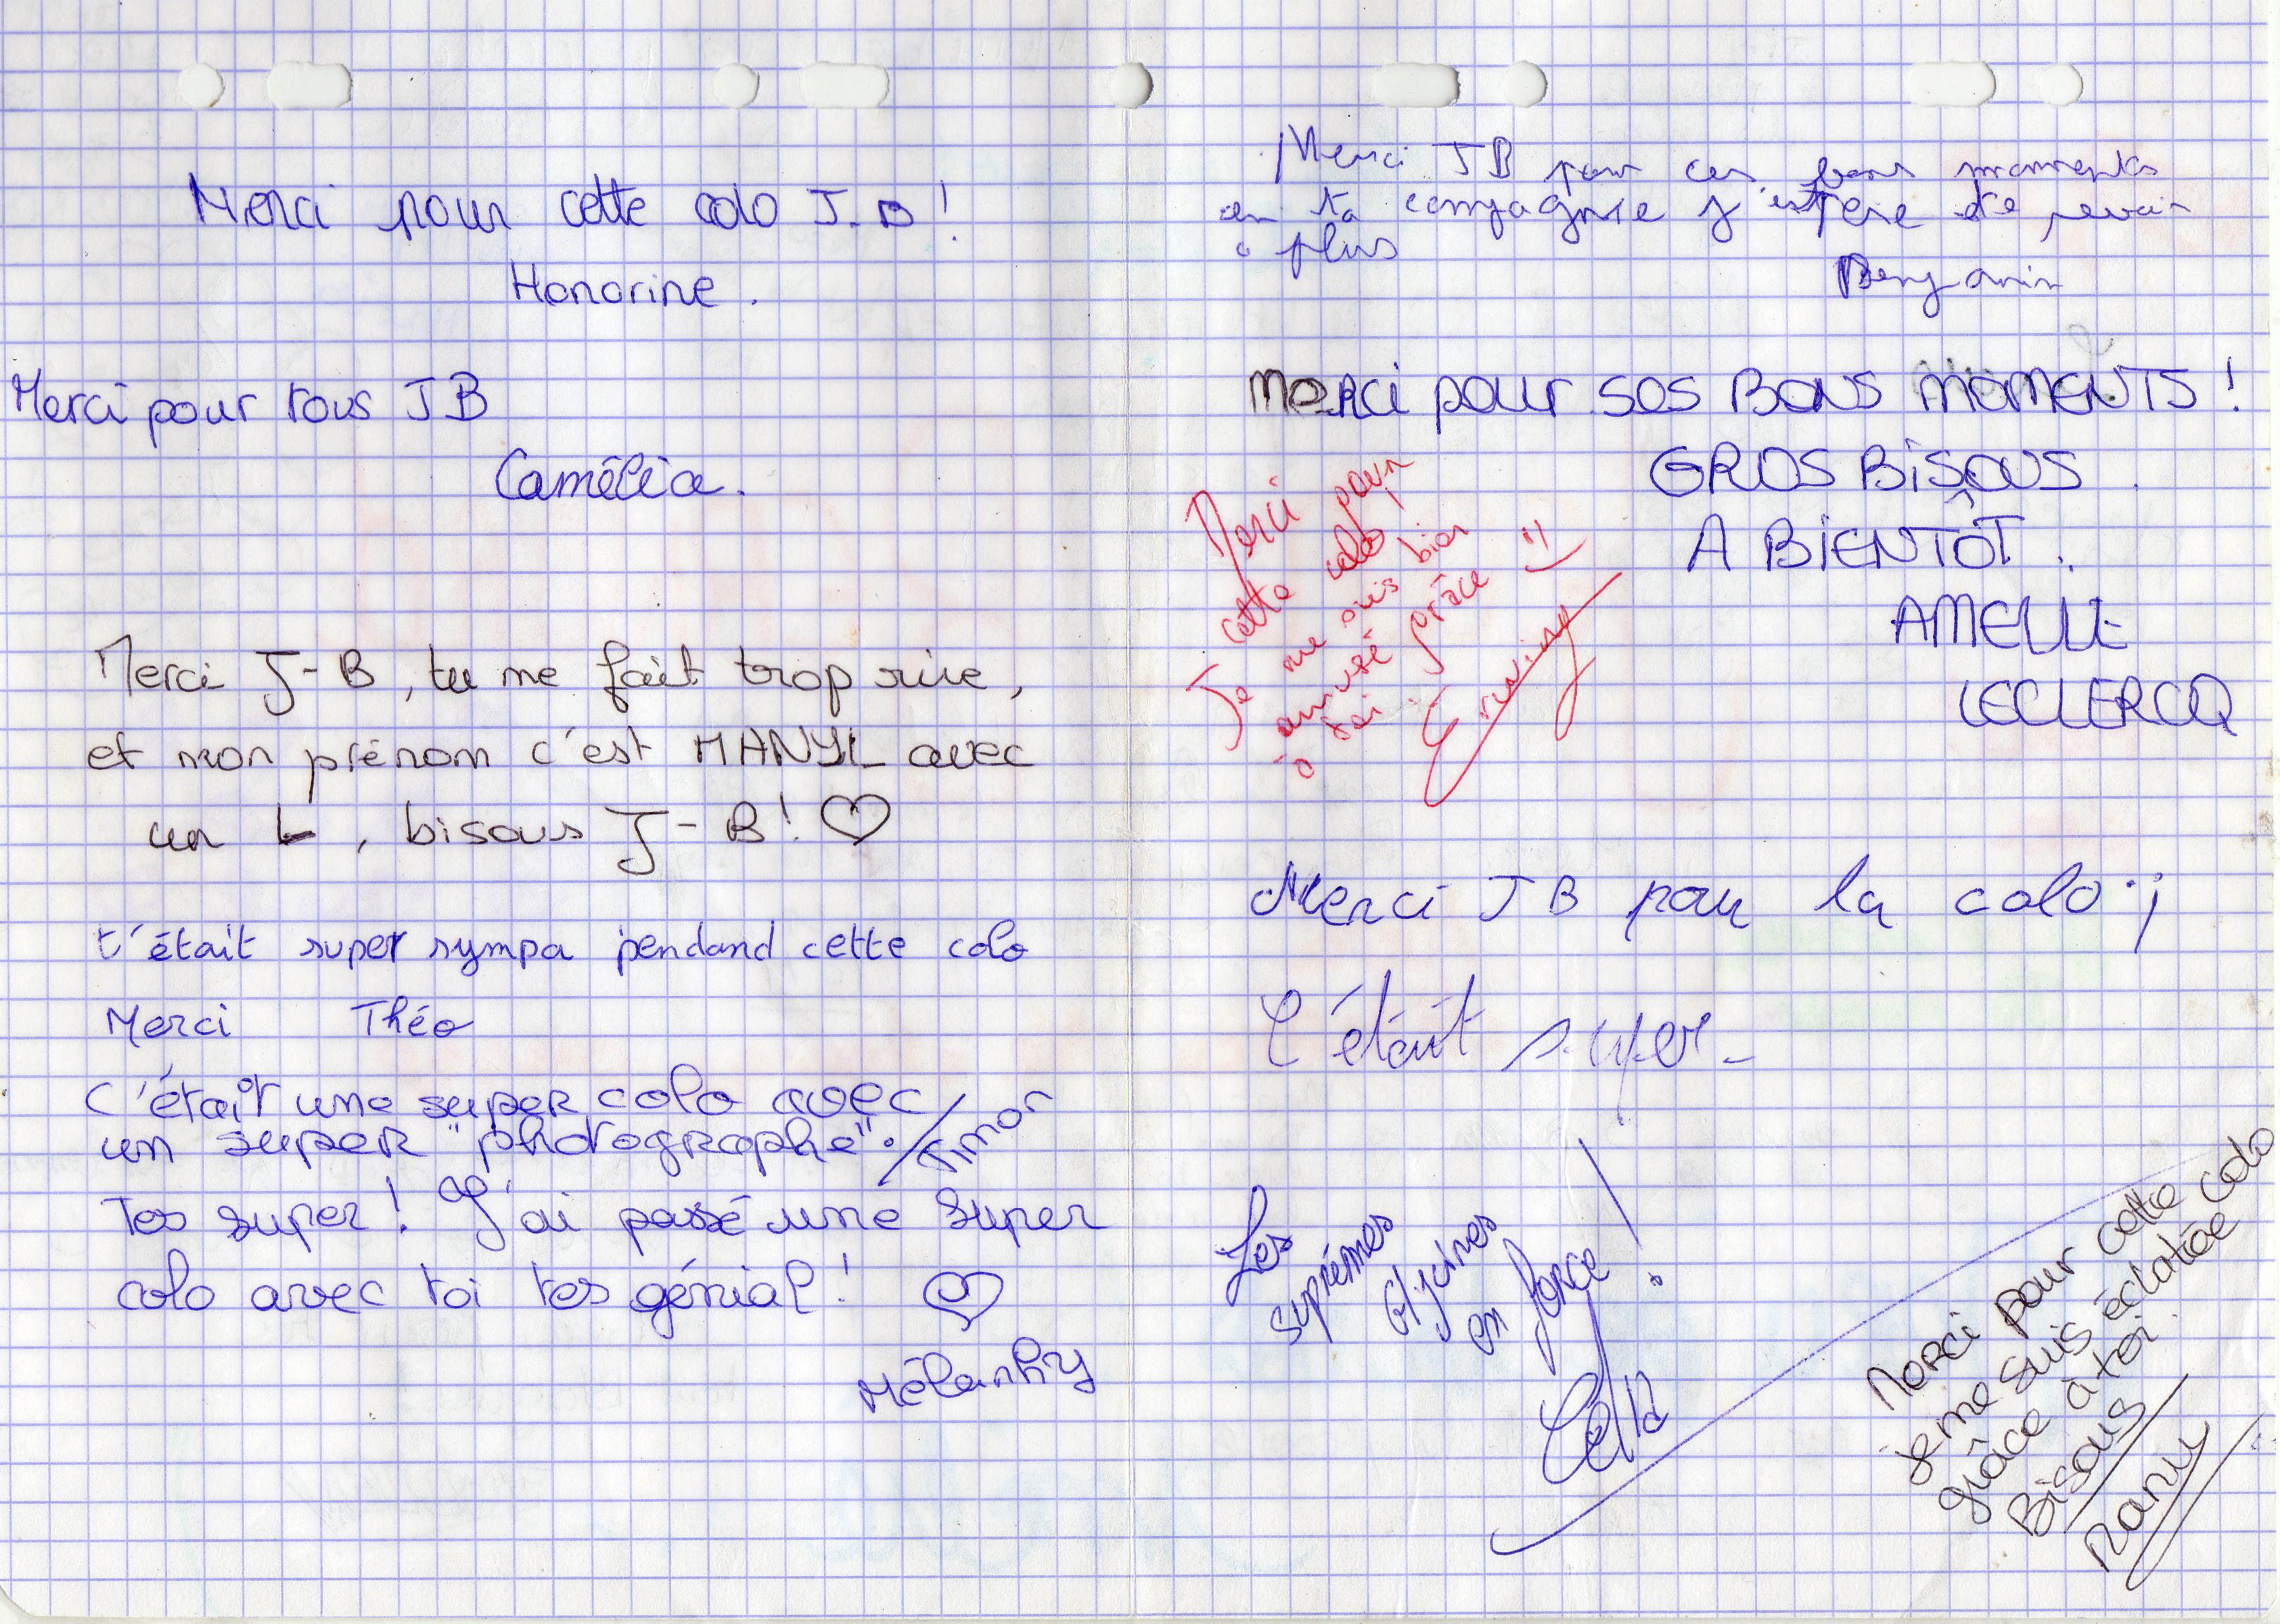 Merci pour cette colo J.B!
Honorine.
Merci pour tous JB
Camélia.
Merci J-B, tu me fait trop rire,
et mon prénom c'est MANYL avec
un L, bisous J-B! ♡
t'était super sympa pendand cette colo
Merci Théo
C'était une super colo avec
un super "photographe". Timor
Tes super! J'ai passé une super
colo avec toi tes génial! ♡
Mélanhy
Merci JB pour ces bons moments
en ta compagnie j'espère te revoir
a plus
Benjamin
Merci pour SOS BONS MOMENTS!
GROS BiSOUS.
A BiENTÔT.
AMELIE
LECLERCQ
Merci pour
cette colo!
Je me suis bien
amusé grâce
à toi
Merci JB pour la colo
C'était super
Les
suprêmes
en force!
Merci pour cette colo
je me suis éclatée
grâce à toi.
Bisous